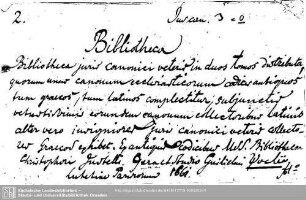 2.
Juscan. 3
Bibliotheca
Bibliotheca juris canonici veteris in duos tomos distributa,
quorum unus canonum ecclesiasticorum codices antiquos
tum graecos, tum latinos complectitur, subjunctis
vetustissimis eorundem canonum collectoribus latinis
alter vero insigniores juris canonici veteris collecto-
res graecos exhibet. Ex antiquis codicibus MSS. Bibliothecae
Christophori Justelli. Opera et studio Guilielmi Voelli
Lutetiae Parisiorum 1661.